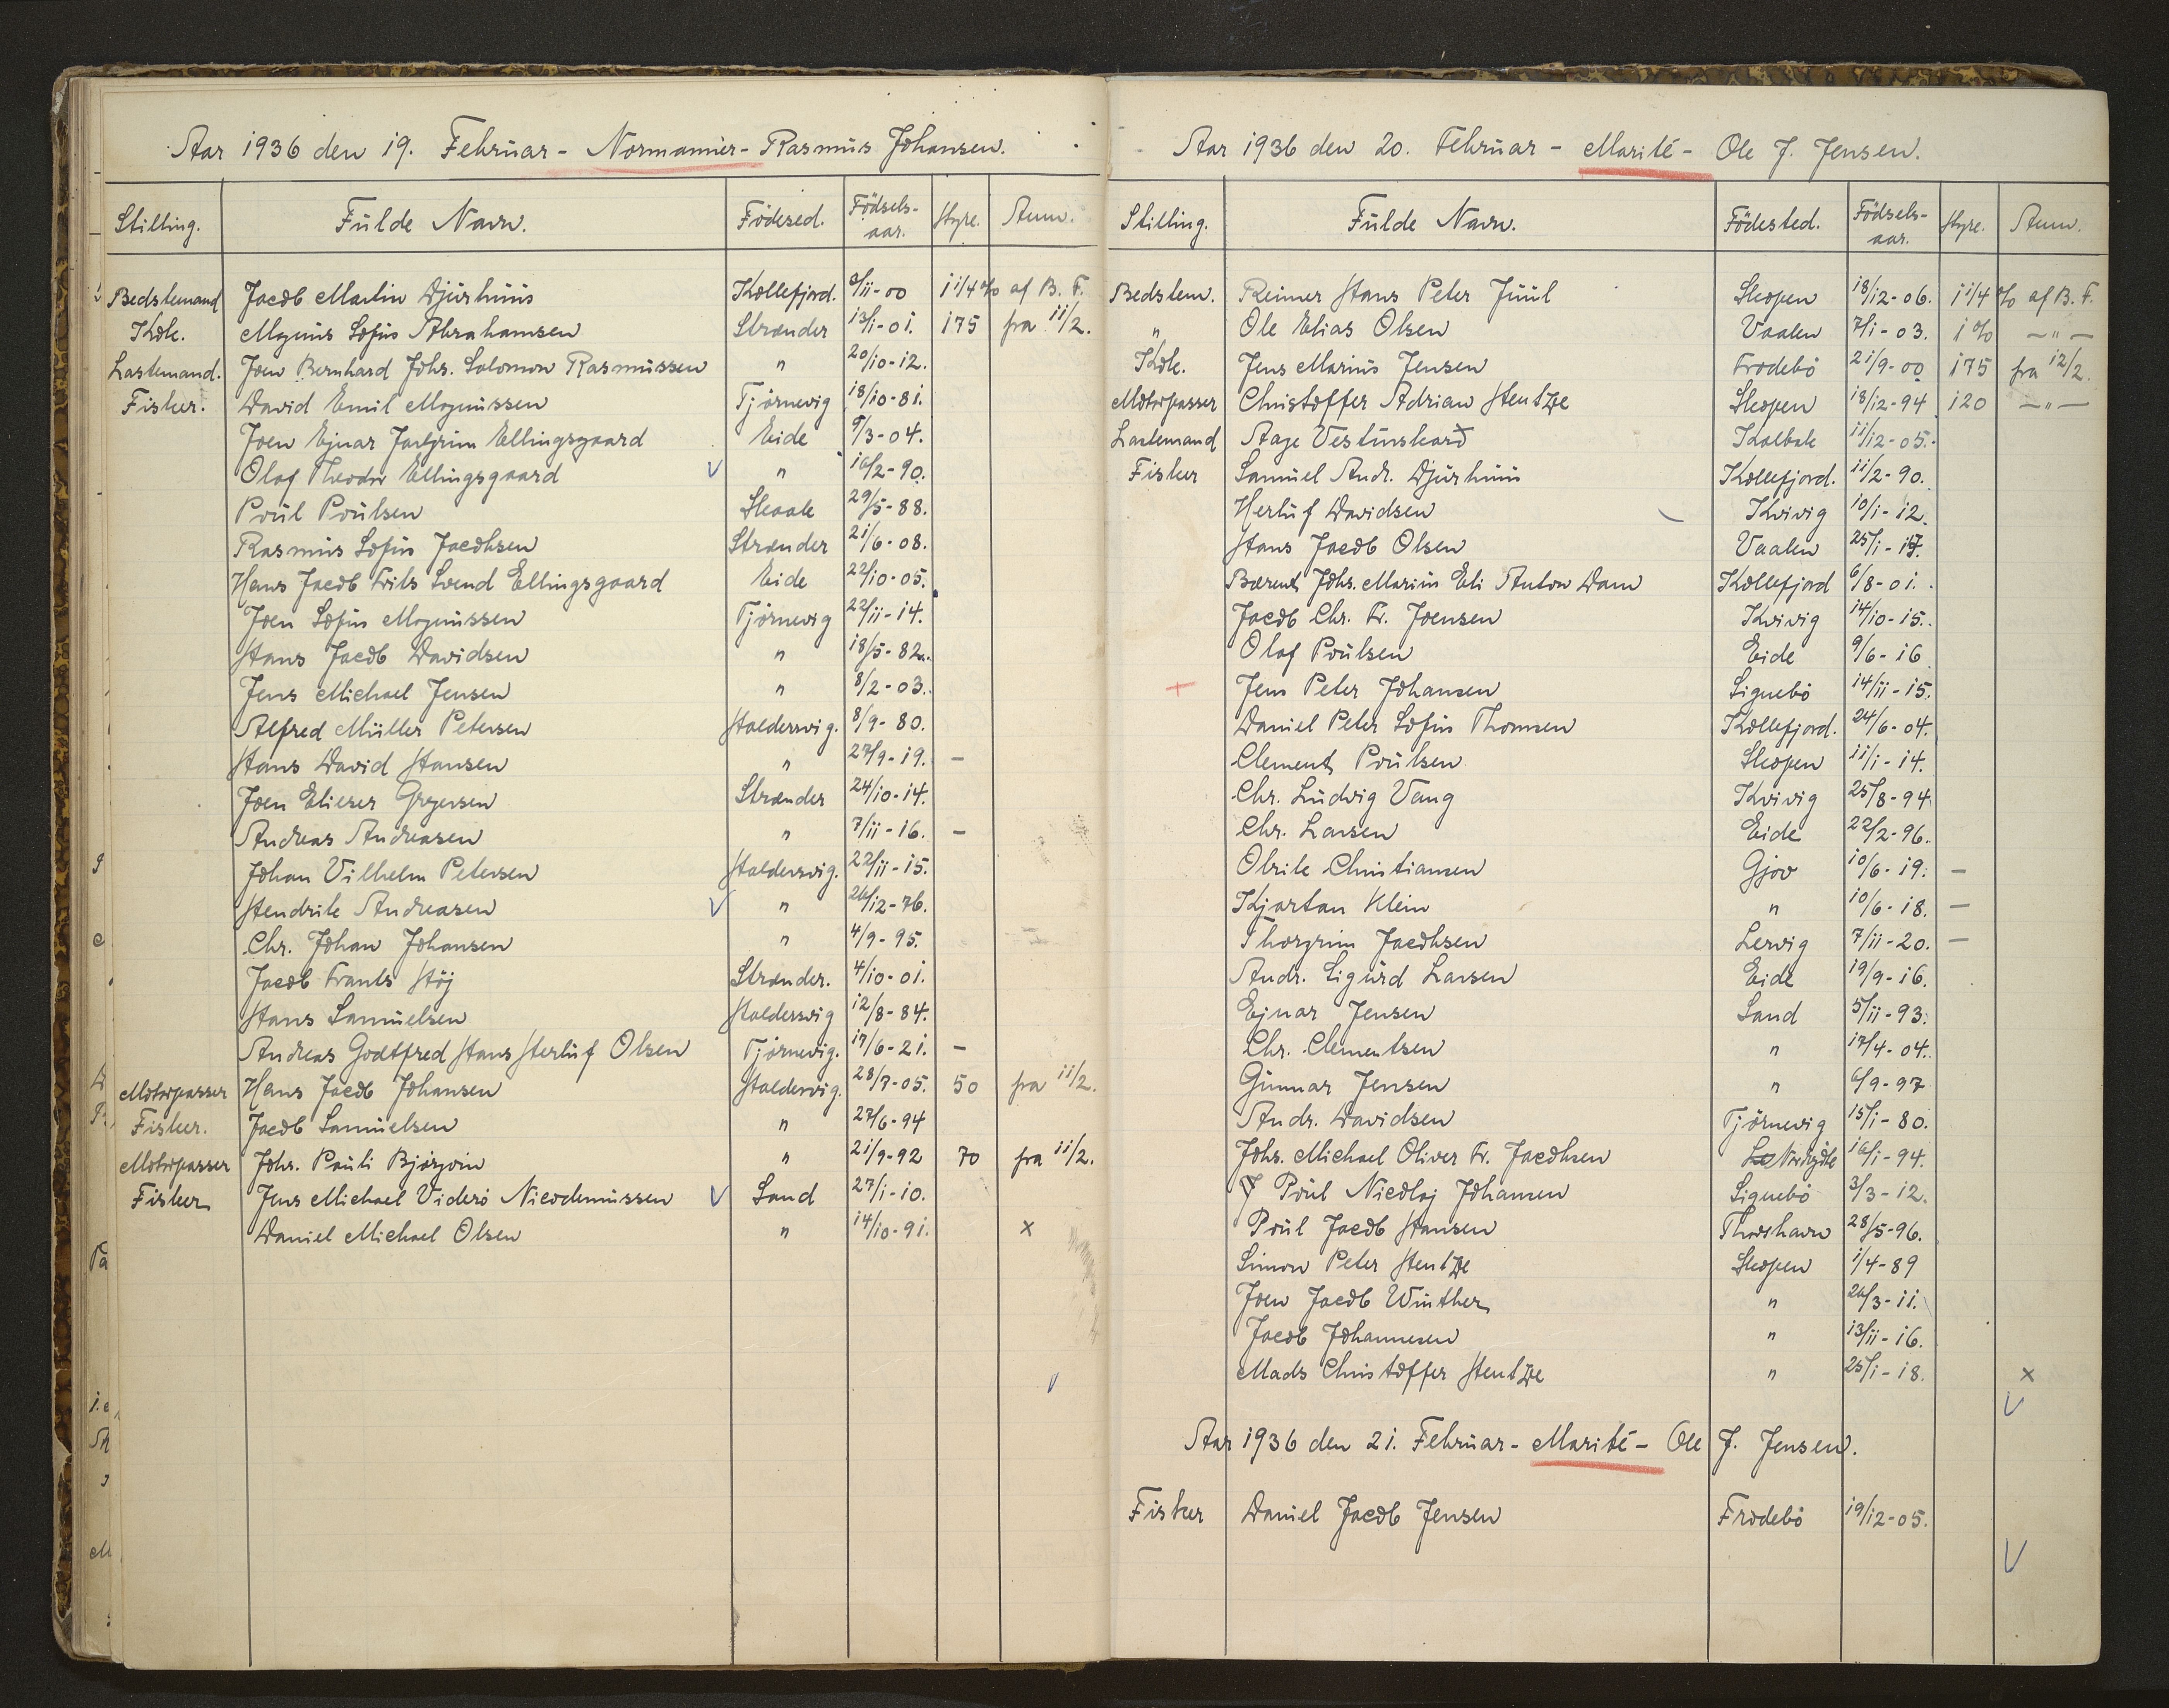 Aar 1936 den 19. Februar - Normanner - Rasmus Johansen.
Stilling. Fulde Navn. Födesed. Födsels-aar. Hyre. Anm.
Bedstemand Jacob Martin Djurhuus Kollefjord. 3/11-00 1 1/4 % af B. F.
Kok. Magnus Sofus Abrahamsen Strænder 13/1-01. 175 fra 11/2.
Lastemand. Joen Bernhard Johs. Solomon Rasmussen " 20/10-12.
Fisker. David Emil Magnussen Tjörnevig 18/10-81.
Joen Ejnar Joelgrim Ellingsgaard Eide 9/3-04.
Olaf Theodor Ellingsgaard V " 16/2-90.
Poul Poulsen Skaale 29/5-88.
Rasmus Sofus Jacobsen Strænder 21/6-08.
Hans Jacob Frits Svend Ellingsgaard Eide 22/10-05.
Joen Sofus Magnussen Tjörnevig 22/11-14.
Hans Jacob Davidsen " 18/5-82.
Jens Michael Jensen " 8/2-03.
Alfred Müller Petersen Haldersvig. 8/9-80.
Hans David Hansen " 27/9-19. -
Joen Elieser Gregersen Strænder 24/10-14.
Andreas Andreasen " 7/11-16. -
Johan Vilhelm Petersen Haldersvig. 22/11-15.
Hendrik Andreasen V " 26/12-76.
Chr. Johan Johansen " 4/9-95.
Jacob Frants Höj Strænder. 4/10-01.
Hans Samuelsen Haldersvig 12/8-84.
Andreas Godtfred Hans Herluf Olsen Tjörnevig. 17/6-21. -
Motorpasser Hans Jacob Johansen Haldersvig. 28/7-05. 50 fra 11/2.
Fisker. Jacob Samuelsen " 27/6-94
Motorpasser Johs. Pauli Bjørgvin " 21/9-92 70 fra 11/2.
Fisker Jens Michael Viderö Nicodemussen V Sand 27/1-10.
Daniel Michael Olsen " 14/10-91. x
V
Aar 1936 den 20. Februar - Marité - Ole J. Jensen.
Stilling. Fulde Navn. Födested. Födsels-aar. Hyre. Anm.
Bedstem. Reimer Hans Peter Juul Skopen 18/12-06. 1 1/4 % af B. F.
" Ole Elias Olsen Vaalen 7/1-03. 1 % -"-
Kok. Jens Marius Jensen Frodebö 21/9-00 175 fra 12/2.
Motorpasser Christoffer Adrian Hentze Skopen 18/12-94 120 -"-
Lastemand Aage Vestinskard Kalbak 11/12-05.
Fisker Samuel Andr. Djurhuus Kollefjord. 11/2-90.
Herluf Davidsen Kvivig 10/1-12.
Hans Jacob Olsen Vaalen 25/1-17.
Bærent Johs. Marius Eli Anton Dam Kollefjord 6/8-01.
Jacob Chr. Fr. Joensen Kvivig 14/10-15.
Olaf Poulsen Eide 9/6-16
+ Jens Peter Johansen Signebö 14/11-15.
Daniel Peter Sofus Thomsen Kollefjord. 24/6-04.
Clement Poulsen Skopen 11/1-14.
Chr. Ludvig Vang Kvivig 25/8-94
Chr. Larsen Eide 22/2-96.
Olrik Christiansen Gjov 10/6-19. -
Kjartan Klein " 10/6-18. -
Thorgrim Jacobsen Lervig 7/11-20. -
Andr. Sigurd Larsen Eide 19/9-16.
Ejnar Jensen Sand 5/11-93.
Chr. Clementsen " 17/4-04.
Gunnar Jensen " 6/9-97
Andr. Davidsen Tjörnevig 15/1-80.
Johs. Michael Oliver Fr. Jacobsen 16/1-94.
Poul Nicolaj Johansen Signebö 3/3-12.
Poul Jacob Hansen Thorshavn 28/5-96.
Simon Peter Hentze Skopen 1/4-89
Joen Jacob Winther " 26/3-11.
Jacob Johannesen " 13/11-16.
Mads Christoffer Hentze " 25/1-18. x
V
Aar 1936 den 21. Februar - Marité - Ole J. Jensen.
Fisker Daniel Jacob Jensen Frodebö 19/12-05.
V